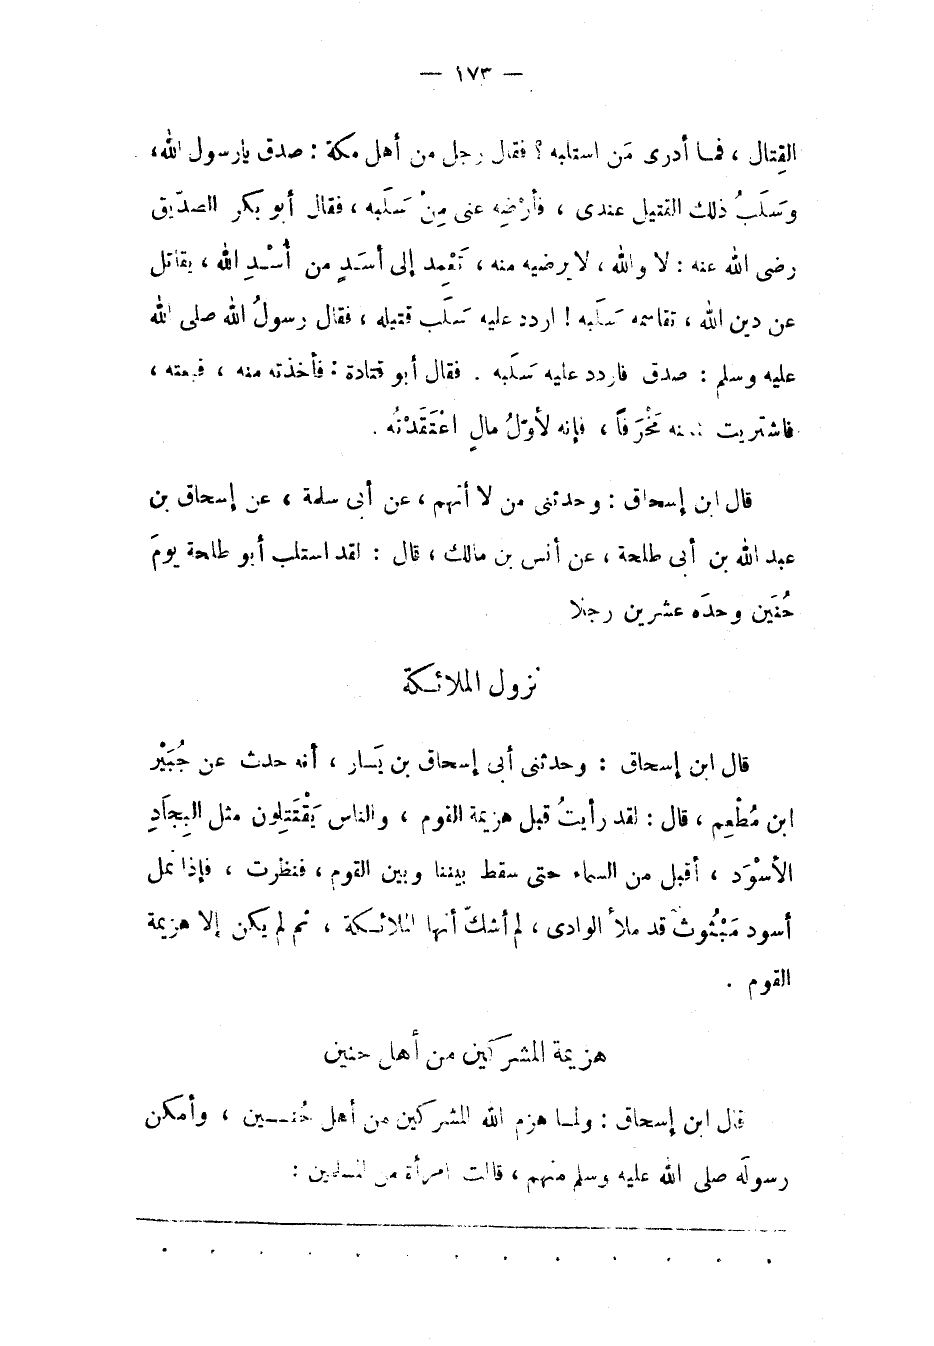 — ١٧٣ —
القِتال ، فمـا أدرى مَن استلبه ؟ فقال رجل من أهل مكة : صدق يارسول الله،
وسَلَبُ ذلك القتيل عندى ، فأرْضِه عنى مِنْ سَلَبه ، فقال أبو بكر الصدّيق
رضى الله عنه : لا والله ، لا يرضيه منه ، تَعْمِد إلى أسَدٍ من أُسْدِ الله ، يقاتل
عن دين الله ، تقاسمه سَلَبه ! اردد عليه سَلَب قتيله ، فقال رسولُ الله صلى الله
عليه وسلم : صدق فاردد عليه سَلَبه . فقال أبو قتادة : فأخذته منه ، فبعته ،
فاشتريت بثمنه مَخْرَفاً ، فإنه لأوّلُ مالٍ اعْتَقَدْتُه .
قال ابن إسحاق : وحدثنى من لا أتهم ، عن أبى سلمة ، عن إسحاق بن
عبد الله بن أبى طلحة ، عن أنس بن مالك ، قال : لقد استلب أبو طلحة يومَ
حُنَين وحدَه عشرين رجلا
نزول الملائكة
قال ابن إسحاق : وحدثنى أبى إسحاق بن يَسار ، أنه حدث عن جُبَيْر
ابن مُطْعِم ، قال : لقد رأيتُ قبل هزيمة القوم ، والناس يَقْتَتِلون مثل البِجَادِ
الأسْوَد ، أقبل من السماء حتى سقط بيننا وبين القوم ، فنظرت ، فإذا نمل
أسود مَبْثُوث قد ملأ الوادى ، لم أشكّ أنها الملائـكة ، ثم لم يكن إلا هزيمة
القوم .
هزيمة المشركين من أهل حنين
قال ابن إسحاق : ولمـا هزم الله المشركين من أهل حُنـــين ، وأمكن
رسولَه صلى الله عليه وسلم منهم ، قالت امرأة من المسلمين :